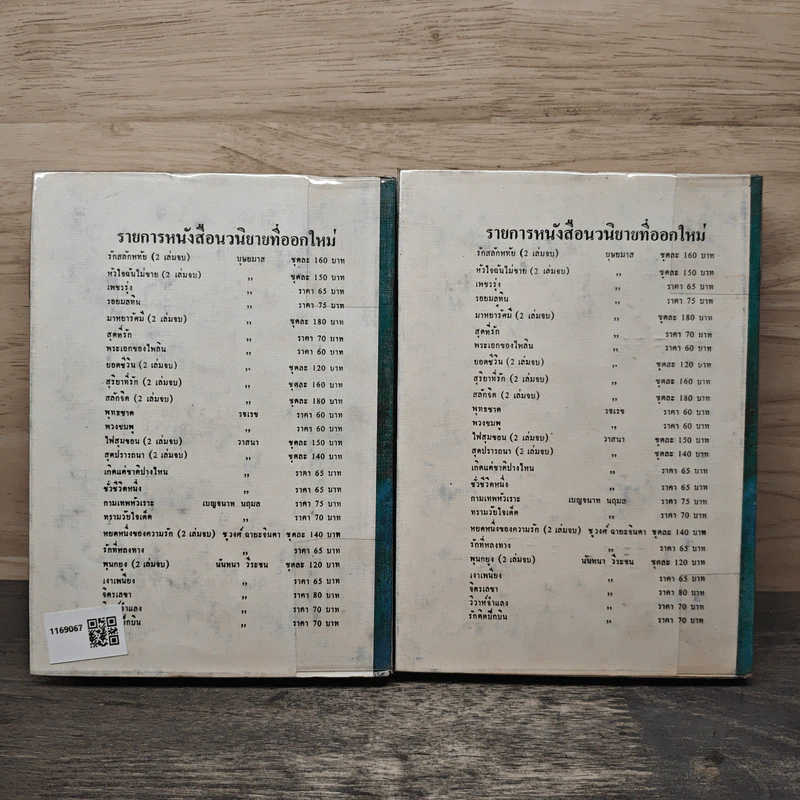 รายการหนังสือนวนิยายที่ออกใหม่
รักสลักหทัย (2 เล่มจบ) บุษยมาส ชุดละ 160 บาท
หัวใจฉันไม่ขาย (2 เล่มจบ) ,, ชุดละ 150 บาท
เพชรรุ่ง ,, ราคา 65 บาท
รอยมลทิน ,, ราคา 75 บาท
มาหยารัศมี (2 เล่มจบ) ,, ชุดละ 180 บาท
สุดที่รัก ,, ราคา 70 บาท
พระเอกของไพลิน ,, ราคา 60 บาท
ยอดชีวิน (2 เล่มจบ) ,, ชุดละ 120 บาท
สุริยาที่รัก (2 เล่มจบ) ,, ชุดละ 160 บาท
สลักจิต (2 เล่มจบ) ,, ชุดละ 180 บาท
พุทธชาด รจเรข ราคา 60 บาท
พวงชมพู ,, ราคา 60 บาท
ไฟสุมขอน (2 เล่มจบ) วาสนา ชุดละ 150 บาท
สุดปรารถนา (2 เล่มจบ) ,, ชุดละ 140 บาท
เกิดแต่ชาติปางไหน ,, ราคา 65 บาท
ชั่วชีวิตหนึ่ง ,, ราคา 65 บาท
กามเทพหัวเราะ เบญจนาท นฤมล ราคา 75 บาท
ทรามวัยใจเด็ด ,, ราคา 70 บาท
หยดหนึ่งของความรัก (2 เล่มจบ) ชูวงศ์ ฉายะจินดา ชุดละ 140 บาท
รักที่หลงทาง ,, ราคา 65 บาท
พุนกยูง (2 เล่มจบ) นันทนา วีระชน ชุดละ 120 บาท
เงาเพนียง ,, ราคา 65 บาท
จิตรเลขา ,, ราคา 80 บาท
ลำแลง ,, ราคา 70 บาท
ปีกบิน ,, ราคา 70 บาท
1169067
รายการหนังสือนวนิยายที่ออกใหม่
รักสลักหทัย (2 เล่มจบ) บุษยมาส ชุดละ 160 บาท
หัวใจฉันไม่ขาย (2 เล่มจบ) ,, ชุดละ 150 บาท
เพชรรุ่ง ,, ราคา 65 บาท
รอยมลทิน ,, ราคา 75 บาท
มาหยารัศมี (2 เล่มจบ) ,, ชุดละ 180 บาท
สุดที่รัก ,, ราคา 70 บาท
พระเอกของไพลิน ,, ราคา 60 บาท
ยอดชีวิน (2 เล่มจบ) ,, ชุดละ 120 บาท
สุริยาที่รัก (2 เล่มจบ) ,, ชุดละ 160 บาท
สลักจิต (2 เล่มจบ) ,, ชุดละ 180 บาท
พุทธชาด รจเรข ราคา 60 บาท
พวงชมพู ,, ราคา 60 บาท
ไฟสุมขอน (2 เล่มจบ) วาสนา ชุดละ 150 บาท
สุดปรารถนา (2 เล่มจบ) ,, ชุดละ 140 บาท
เกิดแต่ชาติปางไหน ,, ราคา 65 บาท
ชั่วชีวิตหนึ่ง ,, ราคา 65 บาท
กามเทพหัวเราะ เบญจนาท นฤมล ราคา 75 บาท
ทรามวัยใจเด็ด ,, ราคา 70 บาท
หยดหนึ่งของความรัก (2 เล่มจบ) ชูวงศ์ ฉายะจินดา ชุดละ 140 บาท
รักที่หลงทาง ,, ราคา 65 บาท
พุนกยูง (2 เล่มจบ) นันทนา วีระชน ชุดละ 120 บาท
เงาเพนียง ,, ราคา 65 บาท
จิตรเลขา ,, ราคา 80 บาท
วิวาห์จำแลง ,, ราคา 70 บาท
รักติดปีกบิน ,, ราคา 70 บาท